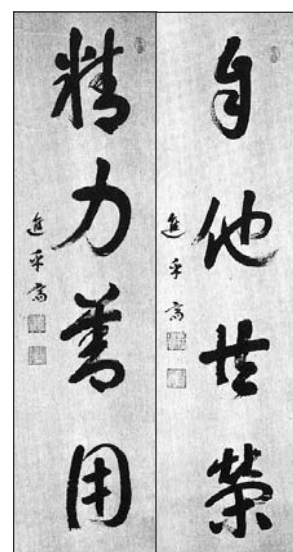 自他共榮
進乎齋
精力善用
進乎齋